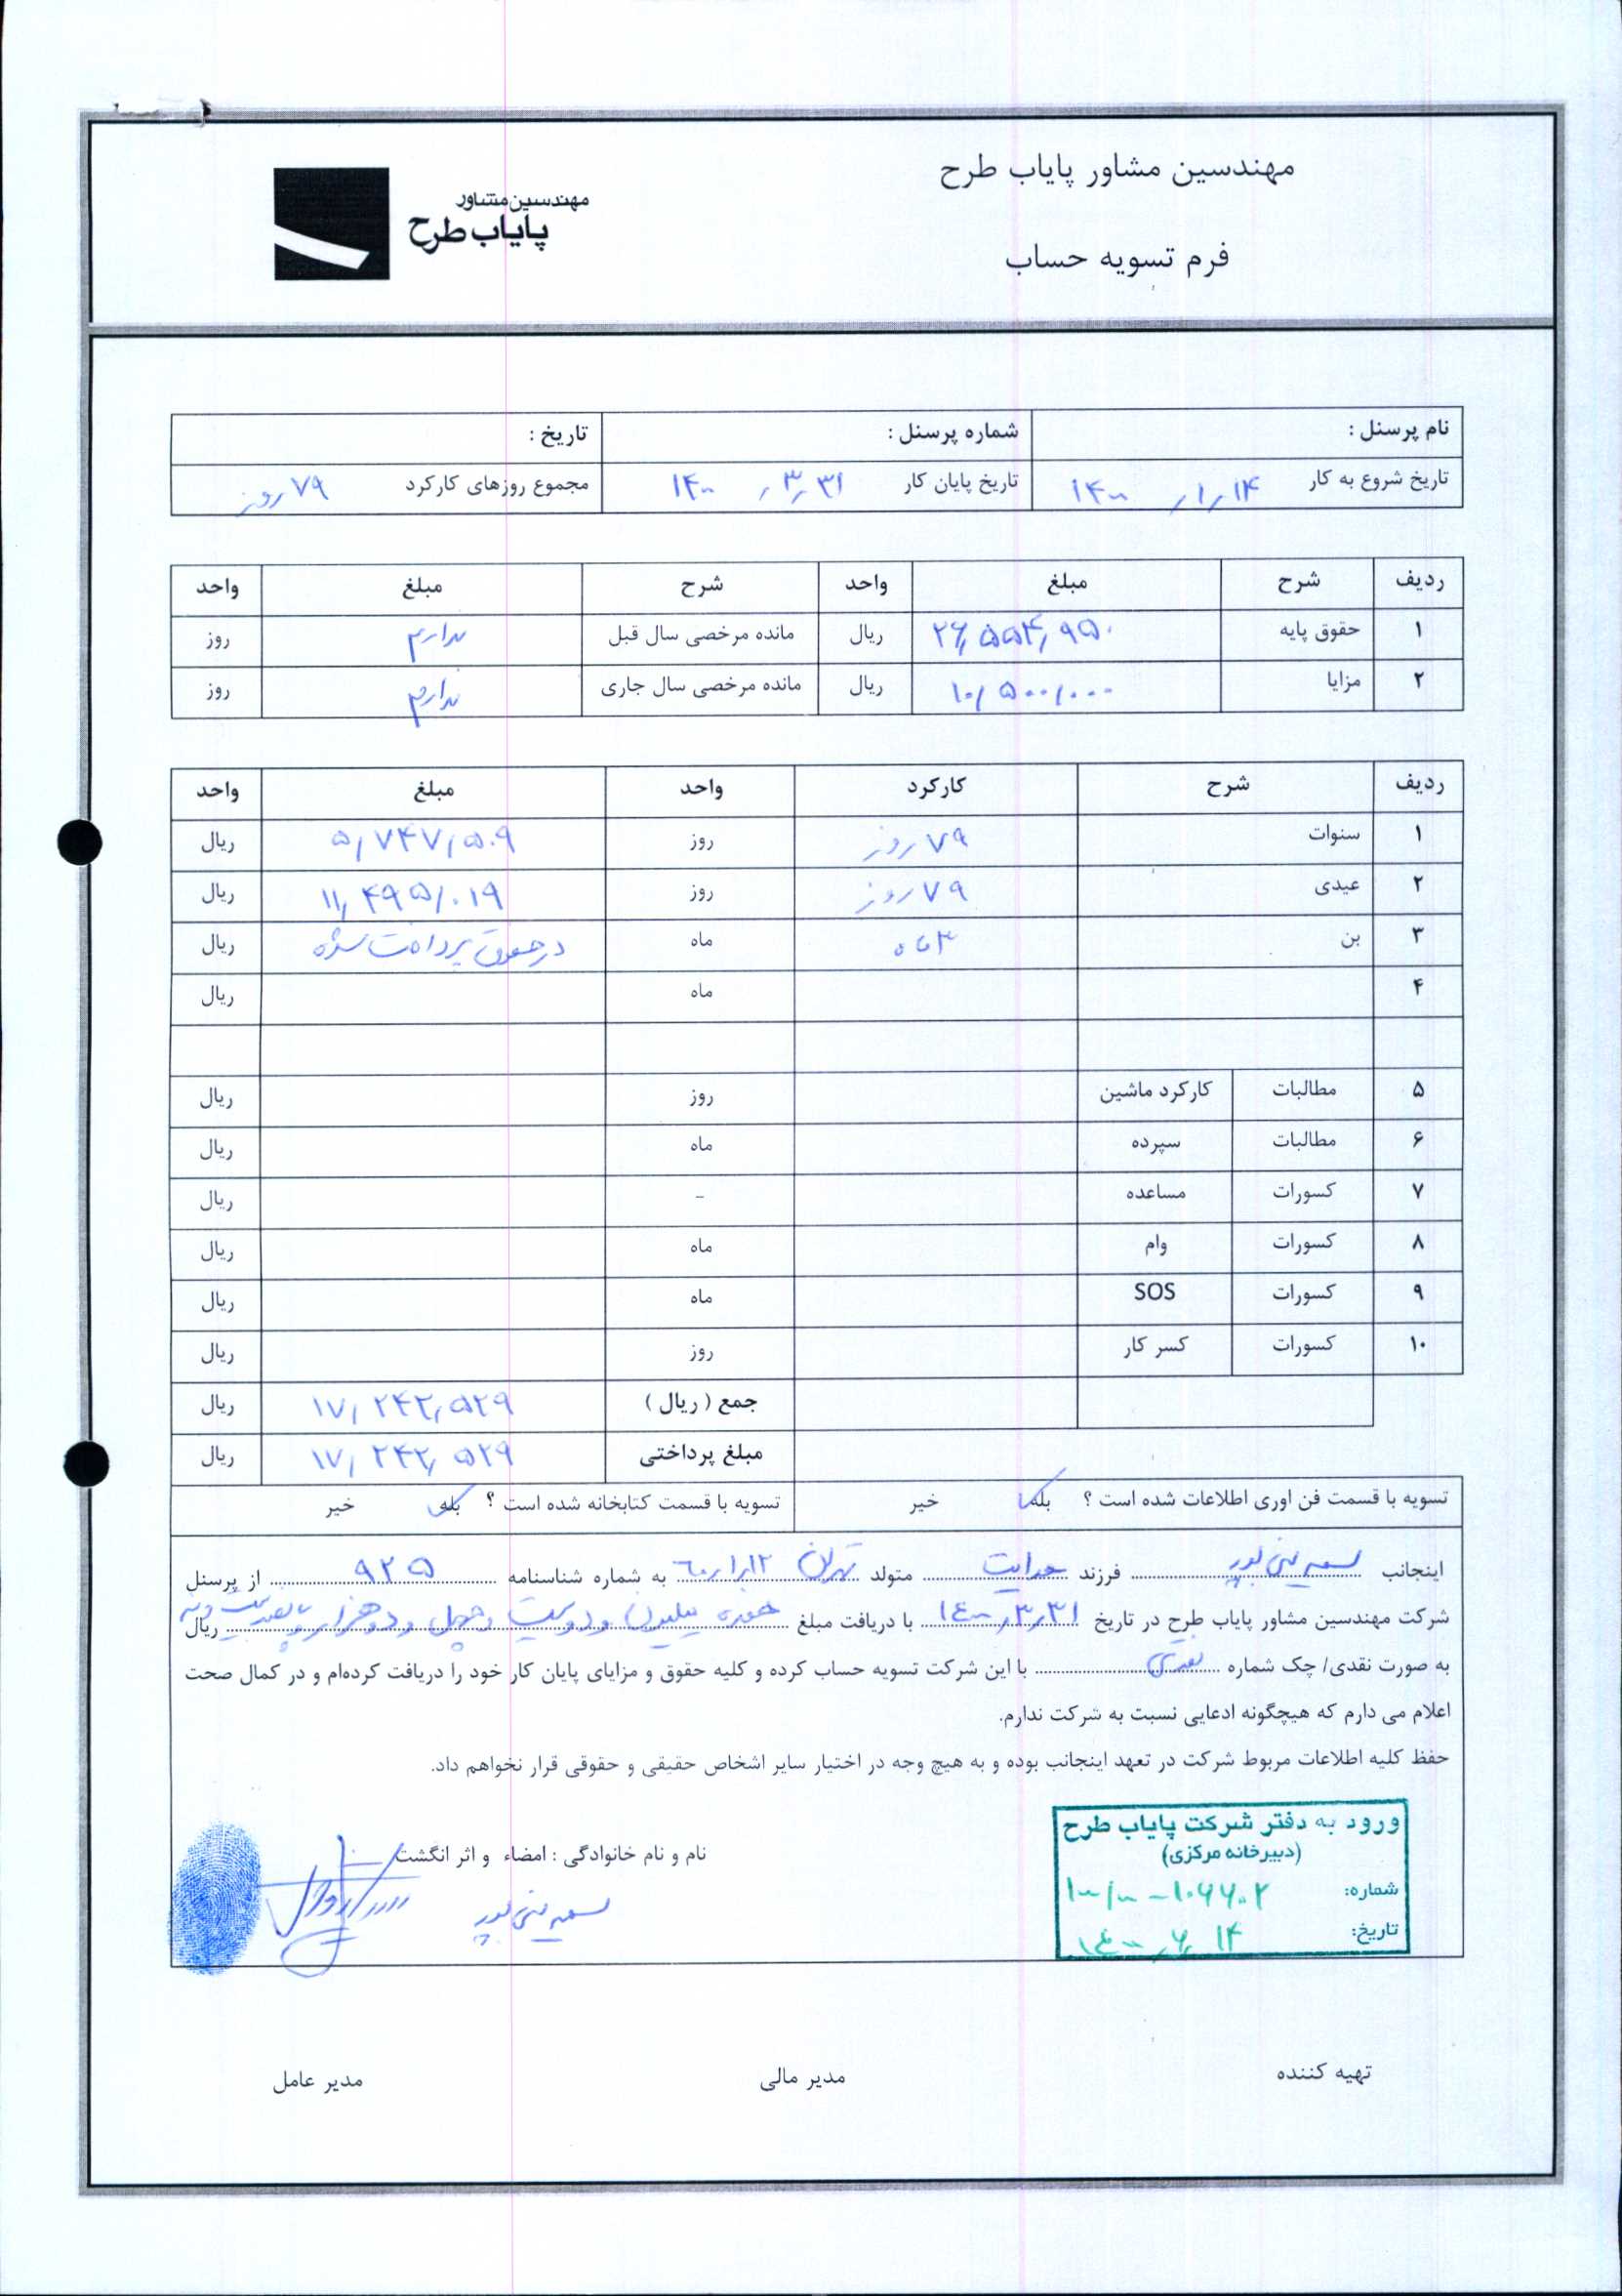 مهندسین مشاور پایاب طرح
مهندسین مشاور
پایاب طرح
فرم تسویه حساب
نام پرسنل : شماره پرسنل : تاریخ :
تاریخ شروع به کار ۱۴۰۰/۱/۱۴ تاریخ پایان کار ۱۴۰۰/۳/۳۱ مجموع روزهای کارکرد ۷۹ روز
ردیف شرح مبلغ واحد شرح مبلغ واحد
۱ حقوق پایه ۲۶,۵۵۴,۹۵۰ ریال مانده مرخصی سال قبل ندارم روز
۲ مزایا ۱۰/۵۰۰/۰۰۰ ریال مانده مرخصی سال جاری ندارم روز
ردیف شرح کارکرد واحد مبلغ واحد
۱ سنوات ۷۹ روز روز ۵/۷۴۷/۵۰۹ ریال
۲ عیدی ۷۹ روز روز ۱۱,۴۹۵/۰۱۹ ریال
۳ بن ۳ ماه ماه در حقوق پرداخت شده ریال
۴ ماه ریال
۵ مطالبات کارکرد ماشین روز ریال
۶ مطالبات سپرده ماه ریال
۷ کسورات مساعده - ریال
۸ کسورات وام ماه ریال
۹ کسورات SOS ماه ریال
۱۰ کسورات کسر کار روز ریال
جمع ( ریال ) ۱۷/۲۴۲,۵۲۹ ریال
مبلغ پرداختی ۱۷/۲۴۲,۵۲۹ ریال
تسویه با قسمت فن اوری اطلاعات شده است ؟ بله خیر تسویه با قسمت کتابخانه شده است ؟ بله خیر
اینجانب فرزند هدایت متولد تهران ۶۰/۱/۱۲ به شماره شناسنامه ۹۲۵ از پرسنل
شرکت مهندسین مشاور پایاب طرح در تاریخ ۱۴۰۰/۳/۳۱ با دریافت مبلغ هفده میلیون و دویست و چهل و دو هزار و پانصد و بیست و نه ریال
به صورت نقدی/ چک شماره نقدی با این شرکت تسویه حساب کرده و کلیه حقوق و مزایای پایان کار خود را دریافت کرده‌ام و در کمال صحت
اعلام می دارم که هیچگونه ادعایی نسبت به شرکت ندارم.
حفظ کلیه اطلاعات مربوط شرکت در تعهد اینجانب بوده و به هیچ وجه در اختیار سایر اشخاص حقیقی و حقوقی قرار نخواهم داد.
ورود به دفتر شرکت پایاب طرح
(دبیرخانه مرکزی)
شماره: ۱۰۰/۰۰-۱۰۶۶۰۲
تاریخ: ۱۴۰۰/۶/۱۴
نام و نام خانوادگی : امضاء و اثر انگشت
تهیه کننده مدیر مالی مدیر عامل